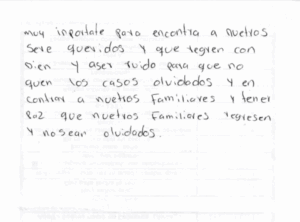 muy inportate para encontra a nuetros
sere queridos y que regren con
bien y aser ruido para que no
quen los casos olvidados y en
contrar a nuetros Familiares y tener
paz que nuetros Familiares regresen
y no sean olvidados.